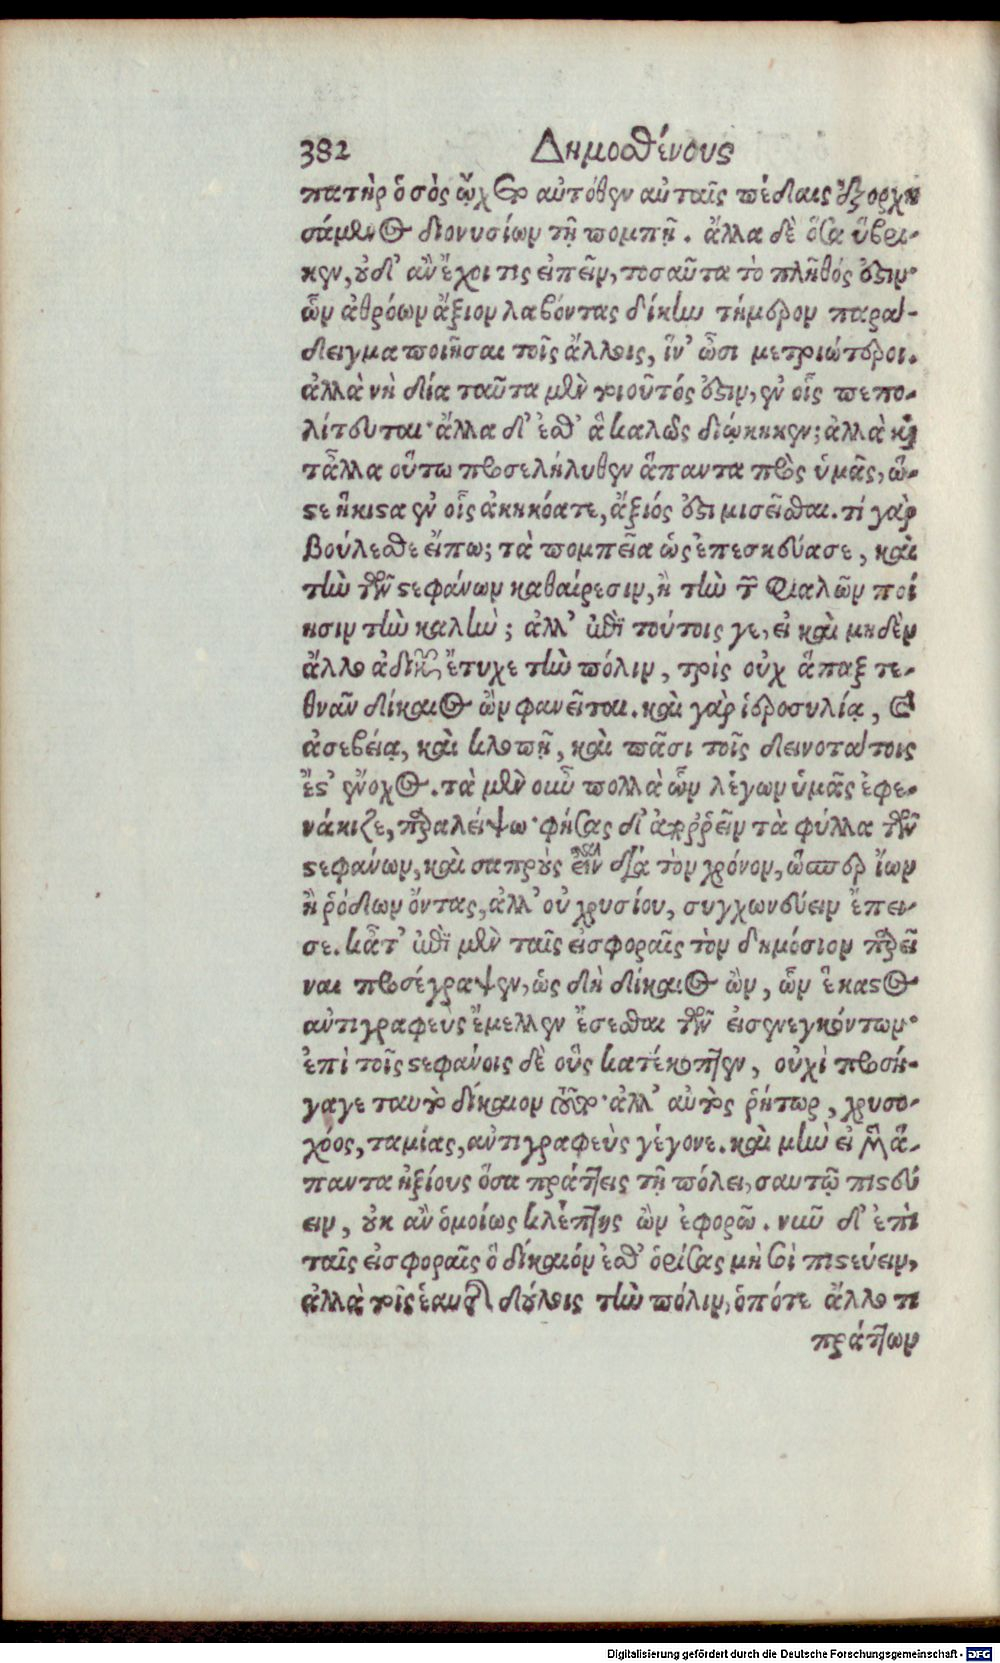 382 Δημοσθένους
πατὴρ ὁ σὸς ᾤχετο αὐτόθεν αὐταῖς πέδαις ἐξορχη
σάμενος διονυσίων τῇ πομπῇ. ἄλλα δὲ ὅσα ὕβρι-
κεν, οὐδ' ἂν ἔχοι τις εἰπεῖν, τοσαῦτα τὸ πλῆθός ἐστιν·
ὧν ἀθρόων ἄξιον λαβόντας δίκην τήμερον παρα-
δειγμα ποιῆσαι τοῖς ἄλλοις, ἵν' ὦσι μετριώτεροι.
ἀλλὰ νὴ δία ταῦτα μὲν τοιοῦτός ἐστιν, ἐν οἷς πεπο-
λίτευται· ἄλλα δ' ἔσθ' ἃ καλῶς διῴκηκεν; ἀλλὰ καὶ
τἆλλα οὕτω προσελήλυθεν ἅπαντα πρὸς ὑμᾶς, ὥ-
στε ἥκιστα ἐν οἷς ἀκηκόατε, ἄξιός ἐστι μισεῖσθαι. τί γὰρ
βούλεσθε εἴπω; τὰ πομπεῖα ὡς ἐπεσκεύασε, καὶ
τὴν τῶν στεφάνων καθαίρεσιν, ἢ τὴν τῶν φιαλῶν ποί
ησιν τὴν καλήν; ἀλλ' ἐπὶ τούτοις γε, εἰ καὶ μηδὲν
ἄλλο ἀδικῶν ἔτυχε τὴν πόλιν, τρὶς οὐχ ἅπαξ τε-
θνᾶν δίκαιος ὢν φανεῖται. καὶ γὰρ ἱεροσυλίᾳ, καὶ
ἀσεβείᾳ, καὶ κλοπῇ, καὶ πᾶσι τοῖς δεινοτάτοις
ἔστ' ἔνοχος. τὰ μὲν οὖν πολλὰ ὧν λέγων ὑμᾶς ἐφε-
νάκιζε, παραλείψω· φήσας δ' ἀπορρεῖν τὰ φύλλα τῶν
στεφάνων, καὶ σαπροὺς εἶναι διὰ τὸν χρόνον, ὥσπερ ἴων
ἢ ῥόδων ὄντας, ἀλλ' οὐ χρυσίου, συγχωνεύειν ἔπει-
σε. κᾆτ' ἐπὶ μὲν ταῖς εἰσφοραῖς τὸν δημόσιον παρεῖ
ναι προσέγραψεν, ὡς δὴ δίκαιος ὢν, ὧν ἕκαστος
ἀντιγραφεὺς ἔμελλεν ἔσεσθαι τῶν εἰσενεγκόντων·
ἐπὶ τοῖς στεφάνοις δὲ οὓς κατέκοπτεν, οὐχὶ προσή-
γαγε ταυτὸ δίκαιον τοῦτο· ἀλλ' αὐτὸς ῥήτωρ, χρυσο-
χόος, ταμίας, ἀντιγραφεὺς γέγονε. καὶ μὴν εἰ μὲν ἅ-
παντα ἠξίους ὅσα πράττεις τῇ πόλει, σαυτῷ πιστεύ
ειν, οὐκ ἂν ὁμοίως κλέπτης ὢν ἐφορῶ. νῦν δ' ἐπὶ
ταῖς εἰσφοραῖς ὃ δίκαιόν ἐσθ' ὁρίσας μὴ σοὶ πιστεύειν,
ἀλλὰ τοῖς ἑαυτῆς δούλοις τὴν πόλιν, ὁπότε ἄλλο τι
πράττων
Digitalisierung gefördert durch die Deutsche Forschungsgemeinschaft - DFG